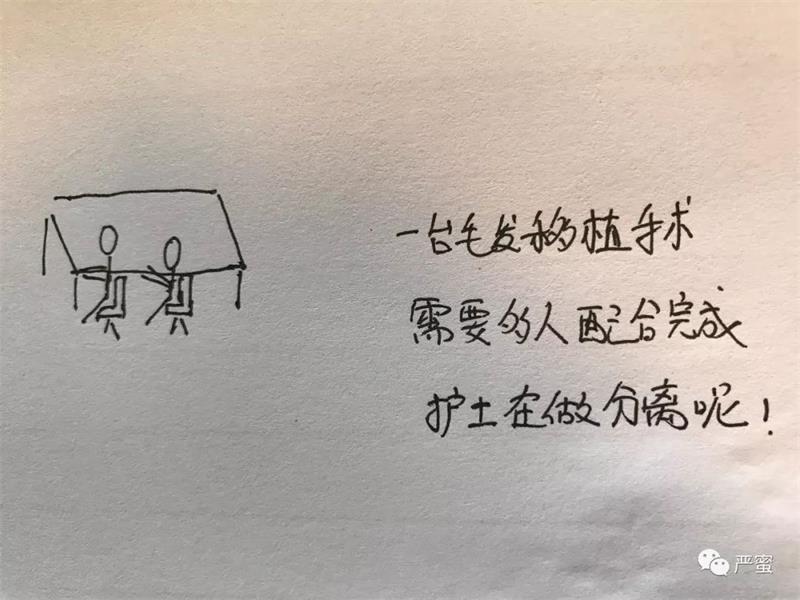 一台毛发移植手术
需要多人配合完成
护士在做分离呢！
严蜜